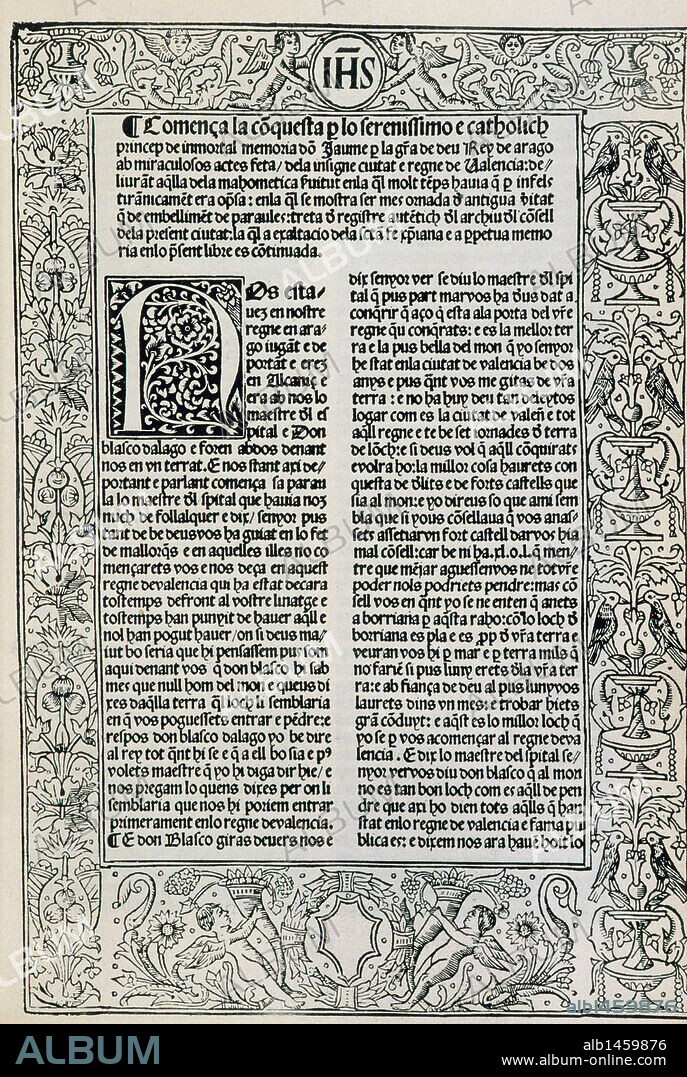 IH̄S
¶ Comença la cōquesta ꝑ lo sereníssimo e catholich
princep de inmortal memoria dō Jaume ꝑ la gr̄a de deu Rey de arago
ab miraculosos actes feta/dela insigne ciutat e regne de Ualencia: de/
liurāt aq̄lla dela mahometica ſuitut enla q̄l molt tēps hauia q̄ ꝑ infels
tiranicamēt era opsa: enla q̄l se mostra ser mes ornada d̄ antigua ṽitat
q̄ de embellimēt de paraules: treta d̄ registre autētich d̄l archiu d̄l cōsell
dela present ciutat: la q̄l a exaltacio dela scta fe xp̄iana e a ꝑpetua memo
ria enlo p̄sent libre es cōtinuada.
NOs esta/
uez en nostre
regne en ara/
go iugāt e de
portāt e erez
en Alcaniz e
era ab nos lo
maestre d̄l es
pital e Don
blasco dalago e foren abdos denant
nos en vn terrat. E nos stant axi de/
portant e parlant comença sa parau
la lo maestre d̄l spital que hauia noz
nuch de follalquer e dix/senyor pus
tāt de be deus vos ha guiat en lo fet
de mallorq̄s e en aquelles illes no co
mençarets vos e nos deça en aquest
regne devalencia qui ha estat decara
tostemps e defront al vostre linatge e
tostemps han punyit de hauer aq̄ll e
nol han pogut hauer/on si deus ma/
iut bo seria que hi pensassem puix som
aqui denant vos q̄ don blasco hi sab
mes que null hom del mon e queus di
xes daq̄lla terra q̄l loch li semblaria
en q̄ vos poguessets entrar e pēdre: e
respos don blasco dalago yo be dire
al rey tot q̄nt hi se e q̄ a ell bo sia e pꝰ
volets maestre q̄ yo hi diga dir hie/ e
nos pregam lo quens dixes per on li
semblaria que nos hi poriem entrar
primerament enlo regne devalencia.
¶ E don Blasco giras devers nos e
dix senyor ver se diu lo maestre d̄l spi
tal q̄ pus part mar vos ha d̄us dat a
conq̄rir q̄ aço q̄ esta ala porta del vr̄e
regne q̄u conq̄rats: e es la mellor ter
ra e la pus bella del mon q̄ yo senyor
he stat enla ciutat de valencia be dos
anys e pus q̄nt vos me gitas de vr̄a
terra: e no ha huy deu tan deleytos
logar com es la ciutat de valen̄ e tot
aq̄ll regne e te be set iornades d̄ terra
de lōch: e si deus vol q̄ aq̄ll cōquirats
e volra ho: la millor cosa haurets con
questa de d̄lits e de forts castells que
sia al mon: e yo dire us so que ami sem
bla que si yous cōsellaua q̄ vos anas/
sets assetiar vn fort castell dar vos hia
mal cōsell: car be ni ha .xl. o .l. q̄ men/
tre que mējar aguessen vos ne tot vr̄e
poder nols podriets pendre: mas cō
sell vos en q̄nt yo se ne enten q̄ anets
a borriana ꝑ aq̄sta raho: cō lo loch d̄
borriana es pla e es ꝓp d̄ vr̄a terra e
veuran vos hi ꝑ mar e ꝑ terra mils q̄
no fariē si pus luny erets d̄la vr̄a ter
ra: e ab fiança de deu al pus luny vos
laurets dins vn mes: e trobar hiets
grā cōduyt: e aq̄st es lo millor loch q̄
yo se ꝑ vos acomençar al regne deva
lencia. E dix lo maestre del spital se/
nyor ver vos diu don blasco q̄ al mon
no es tan bon loch com es aq̄ll de pen
dre que axi ho dien tots aq̄lls q̄ han
stat enlo regne de valencia e fama pu
blica es: e dixem nos ara hauē hoit lo
ALBUM
alb1459876
alb1459876
www.album-online.com